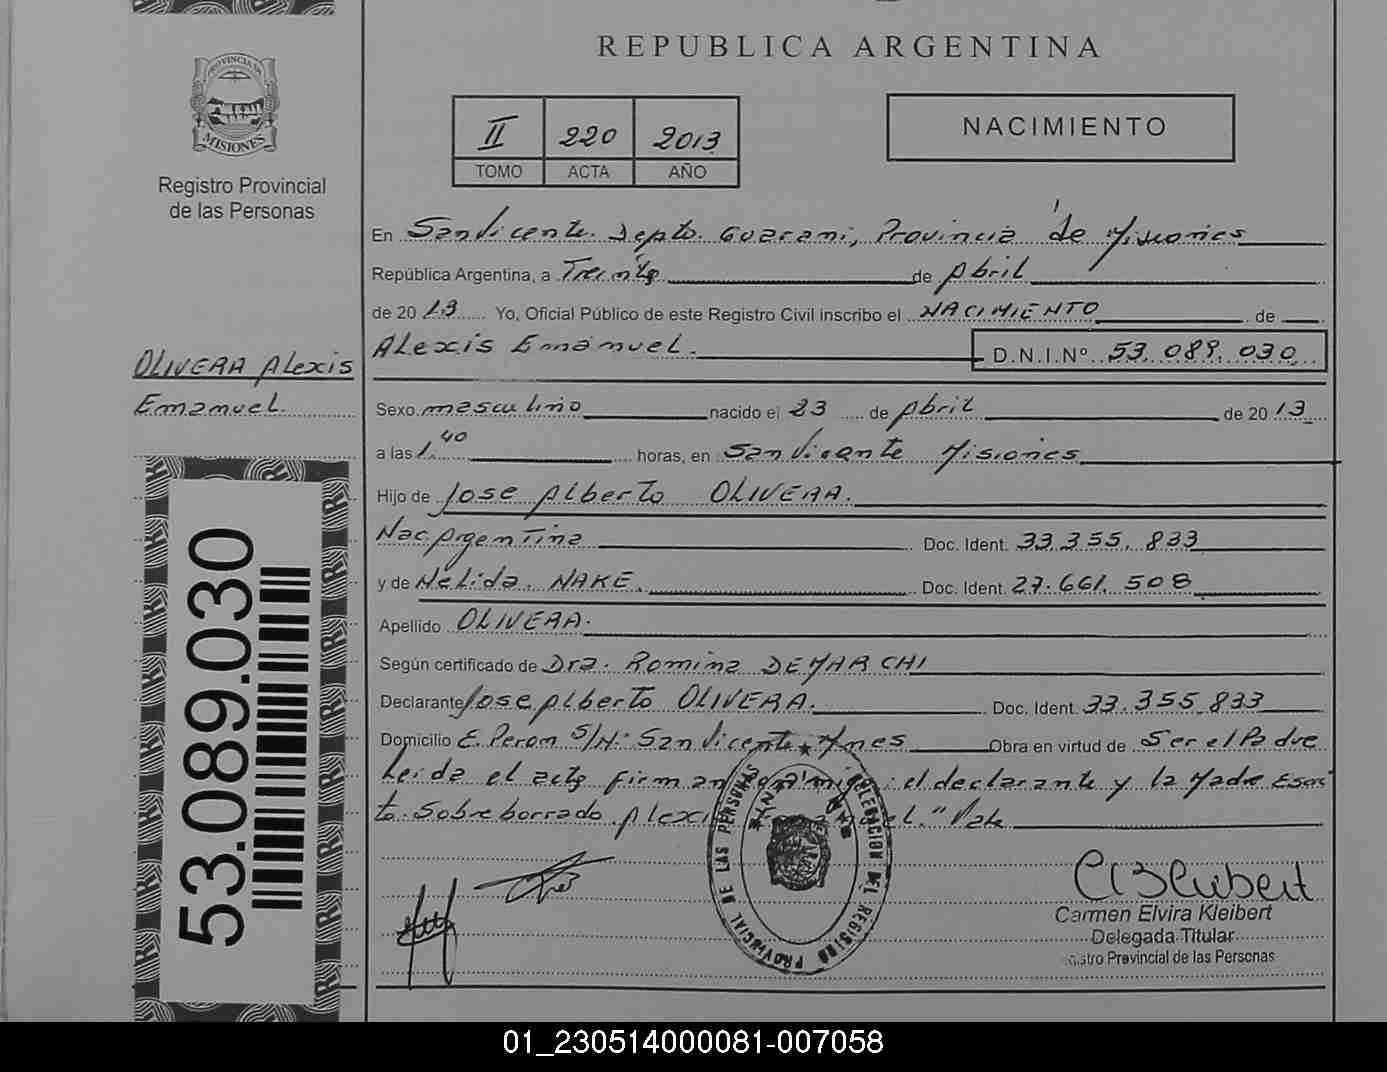 REPUBLICA ARGENTINA
PROVINCIA DE
MISIONES
Registro Provincial
de las Personas
II 220 2013
TOMO ACTA AÑO
NACIMIENTO
En San Vicente. Depto. Guarani, Provincia de Misiones
República Argentina, a Treinta de Abril
de 2013 Yo, Oficial Público de este Registro Civil inscribo el NACIMIENTO de
Alexis Emanuel. D.N.I.Nº 53.089.030
OLIVERA Alexis
Emanuel.
Sexo masculino nacido el 23 de Abril de 2013
a las 1.40 horas, en San Vicente Misiones
Hijo de Jose Alberto OLIVERA.
Nac. Argentina Doc. Ident. 33.355.833
y de Nelida. NAKE. Doc. Ident. 27.661.508
Apellido OLIVERA.
Según certificado de Dra. Romina DEMARCHI
Declarante Jose Alberto OLIVERA. Doc. Ident. 33.355.833
Domicilio E. Peron S/N: San Vicente Mnes Obra en virtud de Ser el Padre
Leida el acta firman el declarante y la Madre Escri
to Sobreborrado "Vale
53.089.030
DELEGACION DEL REGISTRO PROVINCIAL DE LAS PERSONAS
Carmen Elvira Kleibert
Delegada Titular
istro Provincial de las Personas
01_230514000081-007058